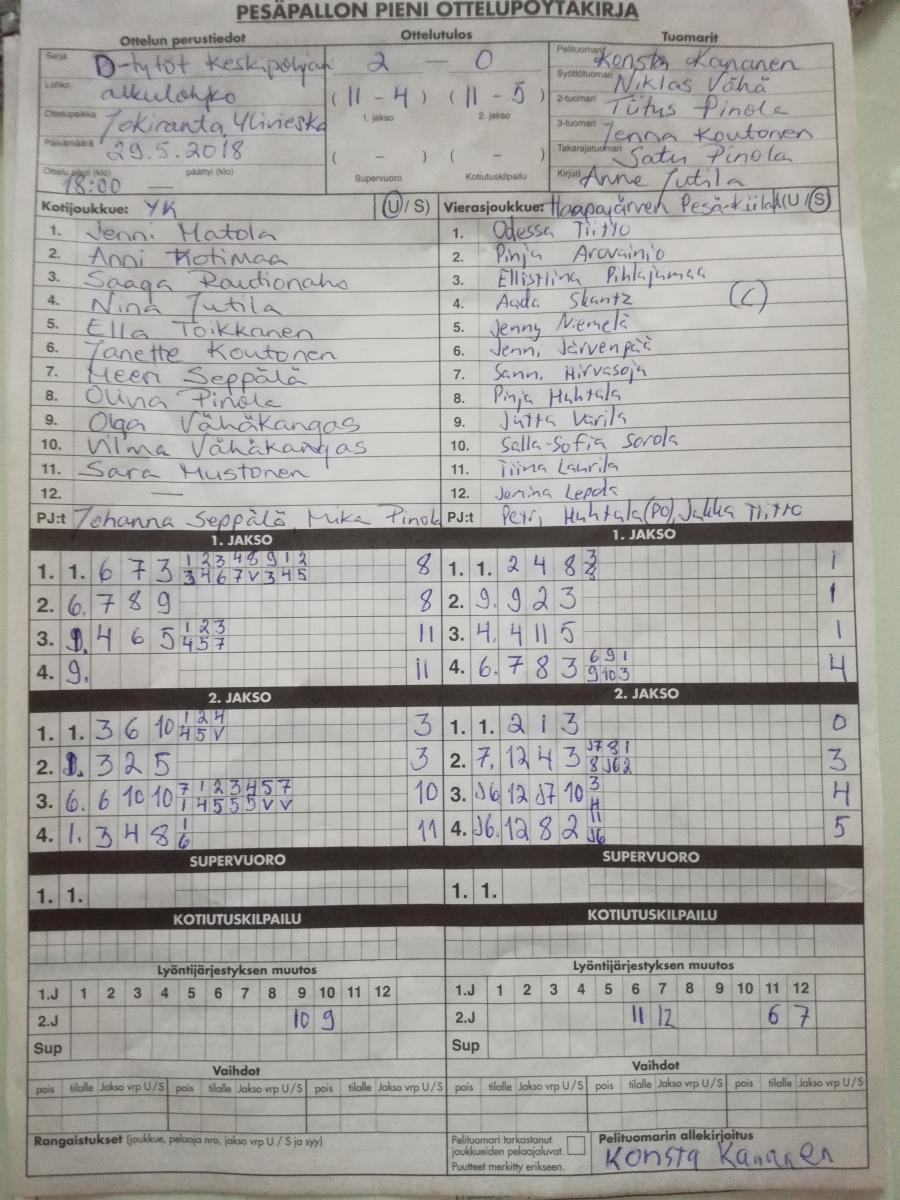 PESÄPALLON PIENI OTTELUPÖYTÄKIRJA
Ottelun perustiedot Ottelutulos Tuomarit
Sarja D-tytöt Keskipohjan 2 – 0 Pelituomari Konsta Kananen
Lohko alkulohko (11 - 4) (11 - 5) Syöttötuomari Niklas Vähä
1. jakso 2. jakso
Ottelupaikka Jokiranta, Ylivieska 2-tuomari Tiitus Pinola
Päivämäärä 29.5.2018 ( - ) ( - ) 3-tuomari Jenna Koutonen
Takarajatuomari Satu Pinola
Ottelu alkoi (klo) 18:00 päättyi (klo) — Supervuoro Kotiutuskilpailu Kirjuri Anne Jutila
Kotijoukkue: YK (U / S) Vierasjoukkue: Haapajärven Pesä-Kiilat (U / S)
1. Jenni Matola 1. Odessa Tiitto
2. Anni Kotimaa 2. Pinja Arovainio
3. Saaga Rautionaho 3. Ellistiina Pihlajamaa
4. Nina Jutila 4. Aada Skantz (C)
5. Ella Toikkanen 5. Jenny Niemelä
6. Janette Koutonen 6. Jenni Järvenpää
7. Meeri Seppälä 7. Sanni Hirvasoja
8. Oliva Pinola 8. Pinja Huhtala
9. Olga Vähäkangas 9. Jutta Varila
10. Vilma Vähäkangas 10. Salla-Sofia Sorola
11. Sara Mustonen 11. Tiina Laurila
12. — 12. Jemina Lepola
PJ:t Johanna Seppälä, Mika Pinola PJ:t Petri Huhtala (PO), Jukka Tiitto
1. JAKSO 1. JAKSO
1 2 3 4 8 9 1 2 3
1. 1. 6 7 3 3 4 6 7 V 3 4 5 8 1. 1. 2 4 8 8 1
2. 6. 7 8 9 8 2. 9. 9 2 3 1
1 2 3
3. 1. 4 6 5 4 5 7 11 3. 4. 4 11 5 1
6 9 1
4. 9. 11 4. 6. 7 8 3 9 10 3 4
2. JAKSO 2. JAKSO
1 2 4
1. 1. 3 6 10 4 5 V 3 1. 1. 2 1 3 0
J7 8 1
2. 1. 3 2 5 3 2. 7. 12 4 3 8 J6 2 3
7 1 2 3 4 5 7 3
3. 6. 6 10 10 1 4 5 5 5 V V 10 3. J6 12 J7 10 4
1 11
4. 1. 3 4 8 6 11 4. J6. 12 8 2 J6 5
SUPERVUORO SUPERVUORO
1. 1. 1. 1.
KOTIUTUSKILPAILU KOTIUTUSKILPAILU
Lyöntijärjestyksen muutos Lyöntijärjestyksen muutos
1.J 1 2 3 4 5 6 7 8 9 10 11 12 1.J 1 2 3 4 5 6 7 8 9 10 11 12
2.J 10 9 2.J 11 12 6 7
Sup Sup
Vaihdot Vaihdot
pois tilalle Jakso vrp U / S pois tilalle Jakso vrp U / S pois tilalle Jakso vrp U / S pois tilalle Jakso vrp U / S pois tilalle Jakso vrp U / S pois tilalle Jakso vrp U / S
Rangaistukset (joukkue, pelaaja nro, jakso vrp U / S ja syy) Pelituomari tarkastanut joukkueiden pelaajaluvat. Pelituomarin allekirjoitus
Puutteet merkitty erikseen. Konsta Kananen